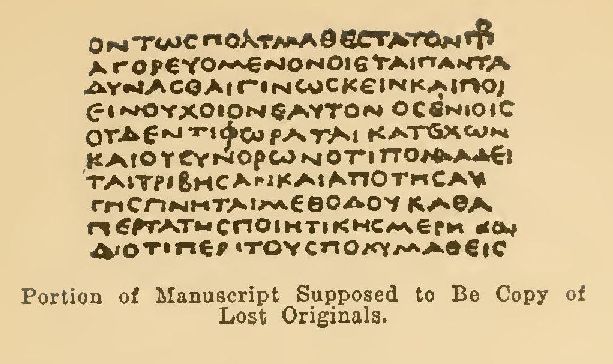 ΟΝΤΩϹΠΟΛΤΜΑΘΕϹΤΑΤΟΝΠΡ
ΑΓΟΡΕΥΟΜΕΝΟΝΟΙΕΤΑΙΠΑΝΤΑ
ΔΥΝΑϹΘΑΙΓΙΝΩϹΚΕΙΝΚΑΙΠΟΙ
ΕΙΝΟΥΧΟΙΟΝΕΑΥΤΟΝ ΟϹΕΝΙΟΙϹ
ΟΥΔΕΝΤΙΦΩΡΑΤΑΙ ΚΑΤΕΧΩΝ
ΚΑΙΟΥϹΥΝΟΡΩΝΟΤΙΠΟΛΛΑΔΕΙ
ΤΑΙΤΡΙΒΗϹΑΝΚΑΙΑΠΟΤΗϹΑΥ
ΤΗϹΓΙΝΗΤΑΙΜΕΘΟΔΟΥΚΑΘΑ
ΠΕΡΤΑΤΗϹΠΟΙΗΤΙΚΗϹΜΕΡΗ ΚΑΙ
ΔΙΟΤΙΠΕΡΙΤΟΥϹΠΟΛΥΜΑΘΕΙϹ
Portion of Manuscript Supposed to Be Copy of
Lost Originals.